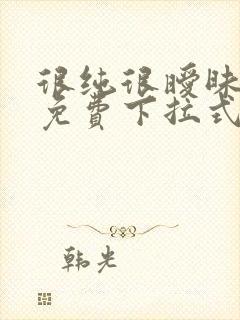 很纯很暧昧
免费下拉式
韩光